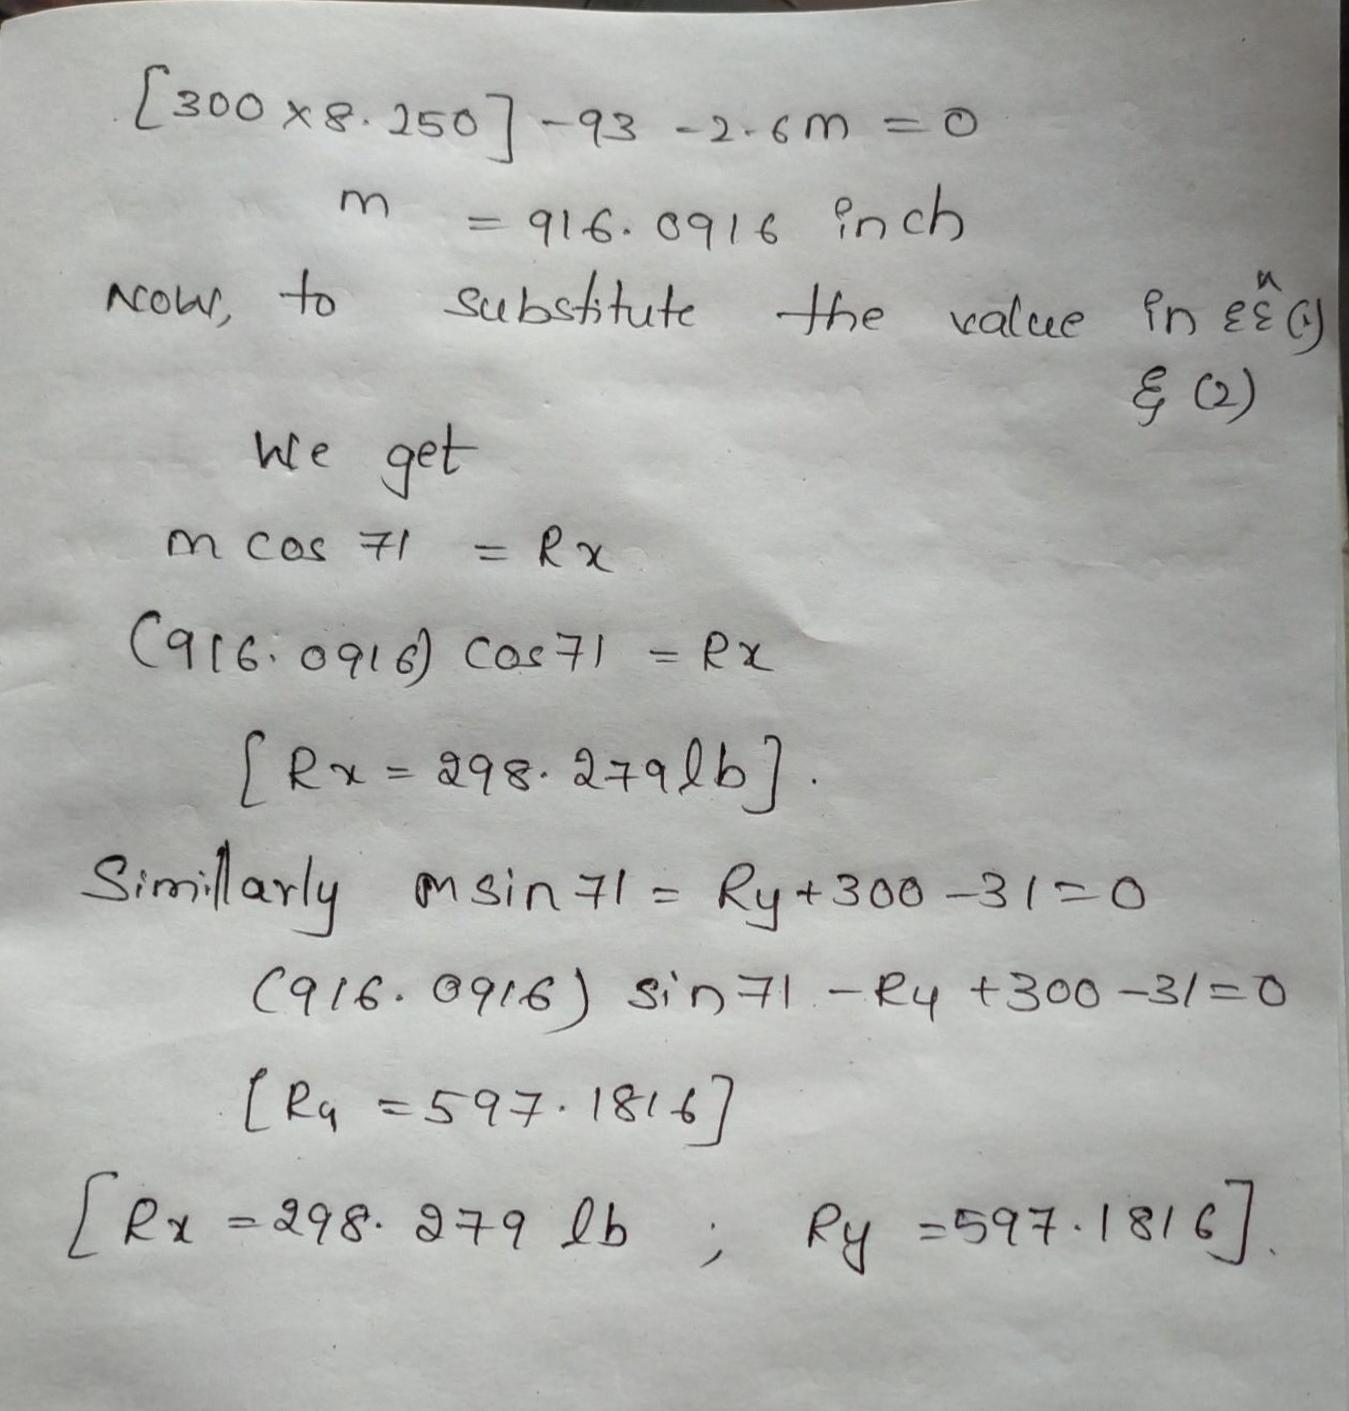 [300 × 8.250] - 93 - 2.6m = 0
m = 916.0916 inch
Now, to substitute the value in eqⁿ (1)
& (2)
We get
m cos 71 = Rx
(916.0916) cos 71 = Rx
[Rx = 298.279 lb].
Simillarly m sin 71 = Ry + 300 - 31 = 0
(916.0916) sin 71 - Ry + 300 - 31 = 0
[Ry = 597.1816]
[Rx = 298.279 lb ; Ry = 597.1816].